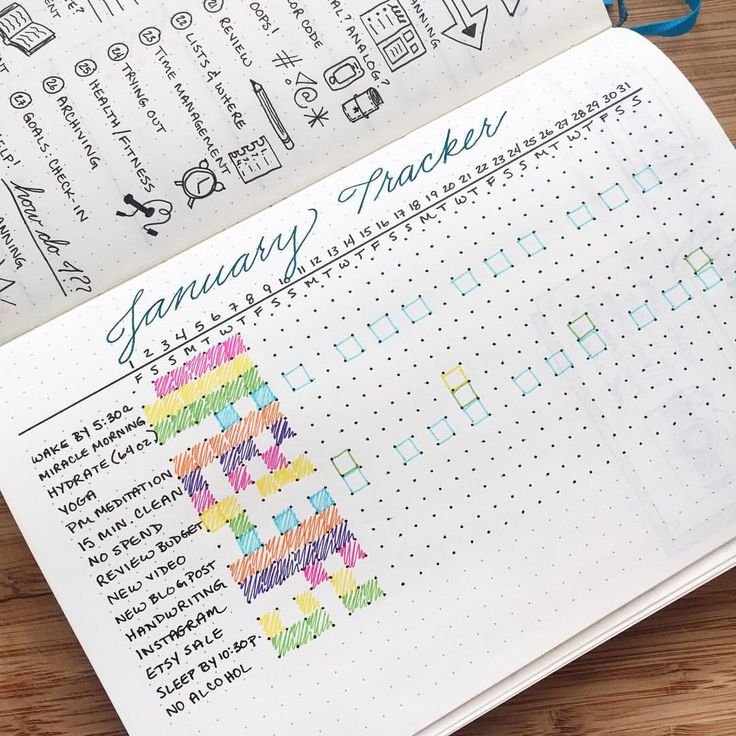 OOPS!
REVIEW
LISTS & WHERE
23 TIME MANAGEMENT
24 TRYING OUT
25 HEALTH/FITNESS
26 ARCHIVING
27 GOALS CHECK-IN
CODE
#!
ANALOG?
how do I??
January Tracker
1 2 3 4 5 6 7 8 9 10 11 12 13 14 15 16 17 18 19 20 21 22 23 24 25 26 27 28 29 30 31
F S S M T W T F S S M T W T F S S M T W T F S S M T W T F S S
WAKE BY 5:30a
MIRACLE MORNING
HYDRATE (64 oz)
YOGA
PM MEDITATION
15 MIN. CLEAN
NO SPEND
REVIEW BUDGET
NEW VIDEO
NEW BLOG POST
HANDWRITING
INSTAGRAM
ETSY SALE
SLEEP BY 10:30p.
NO ALCOHOL